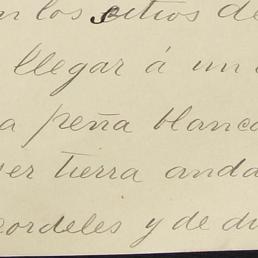 n los sitios de
llegar á un
a peña blanca
ser tierra anda
cordeles y de di